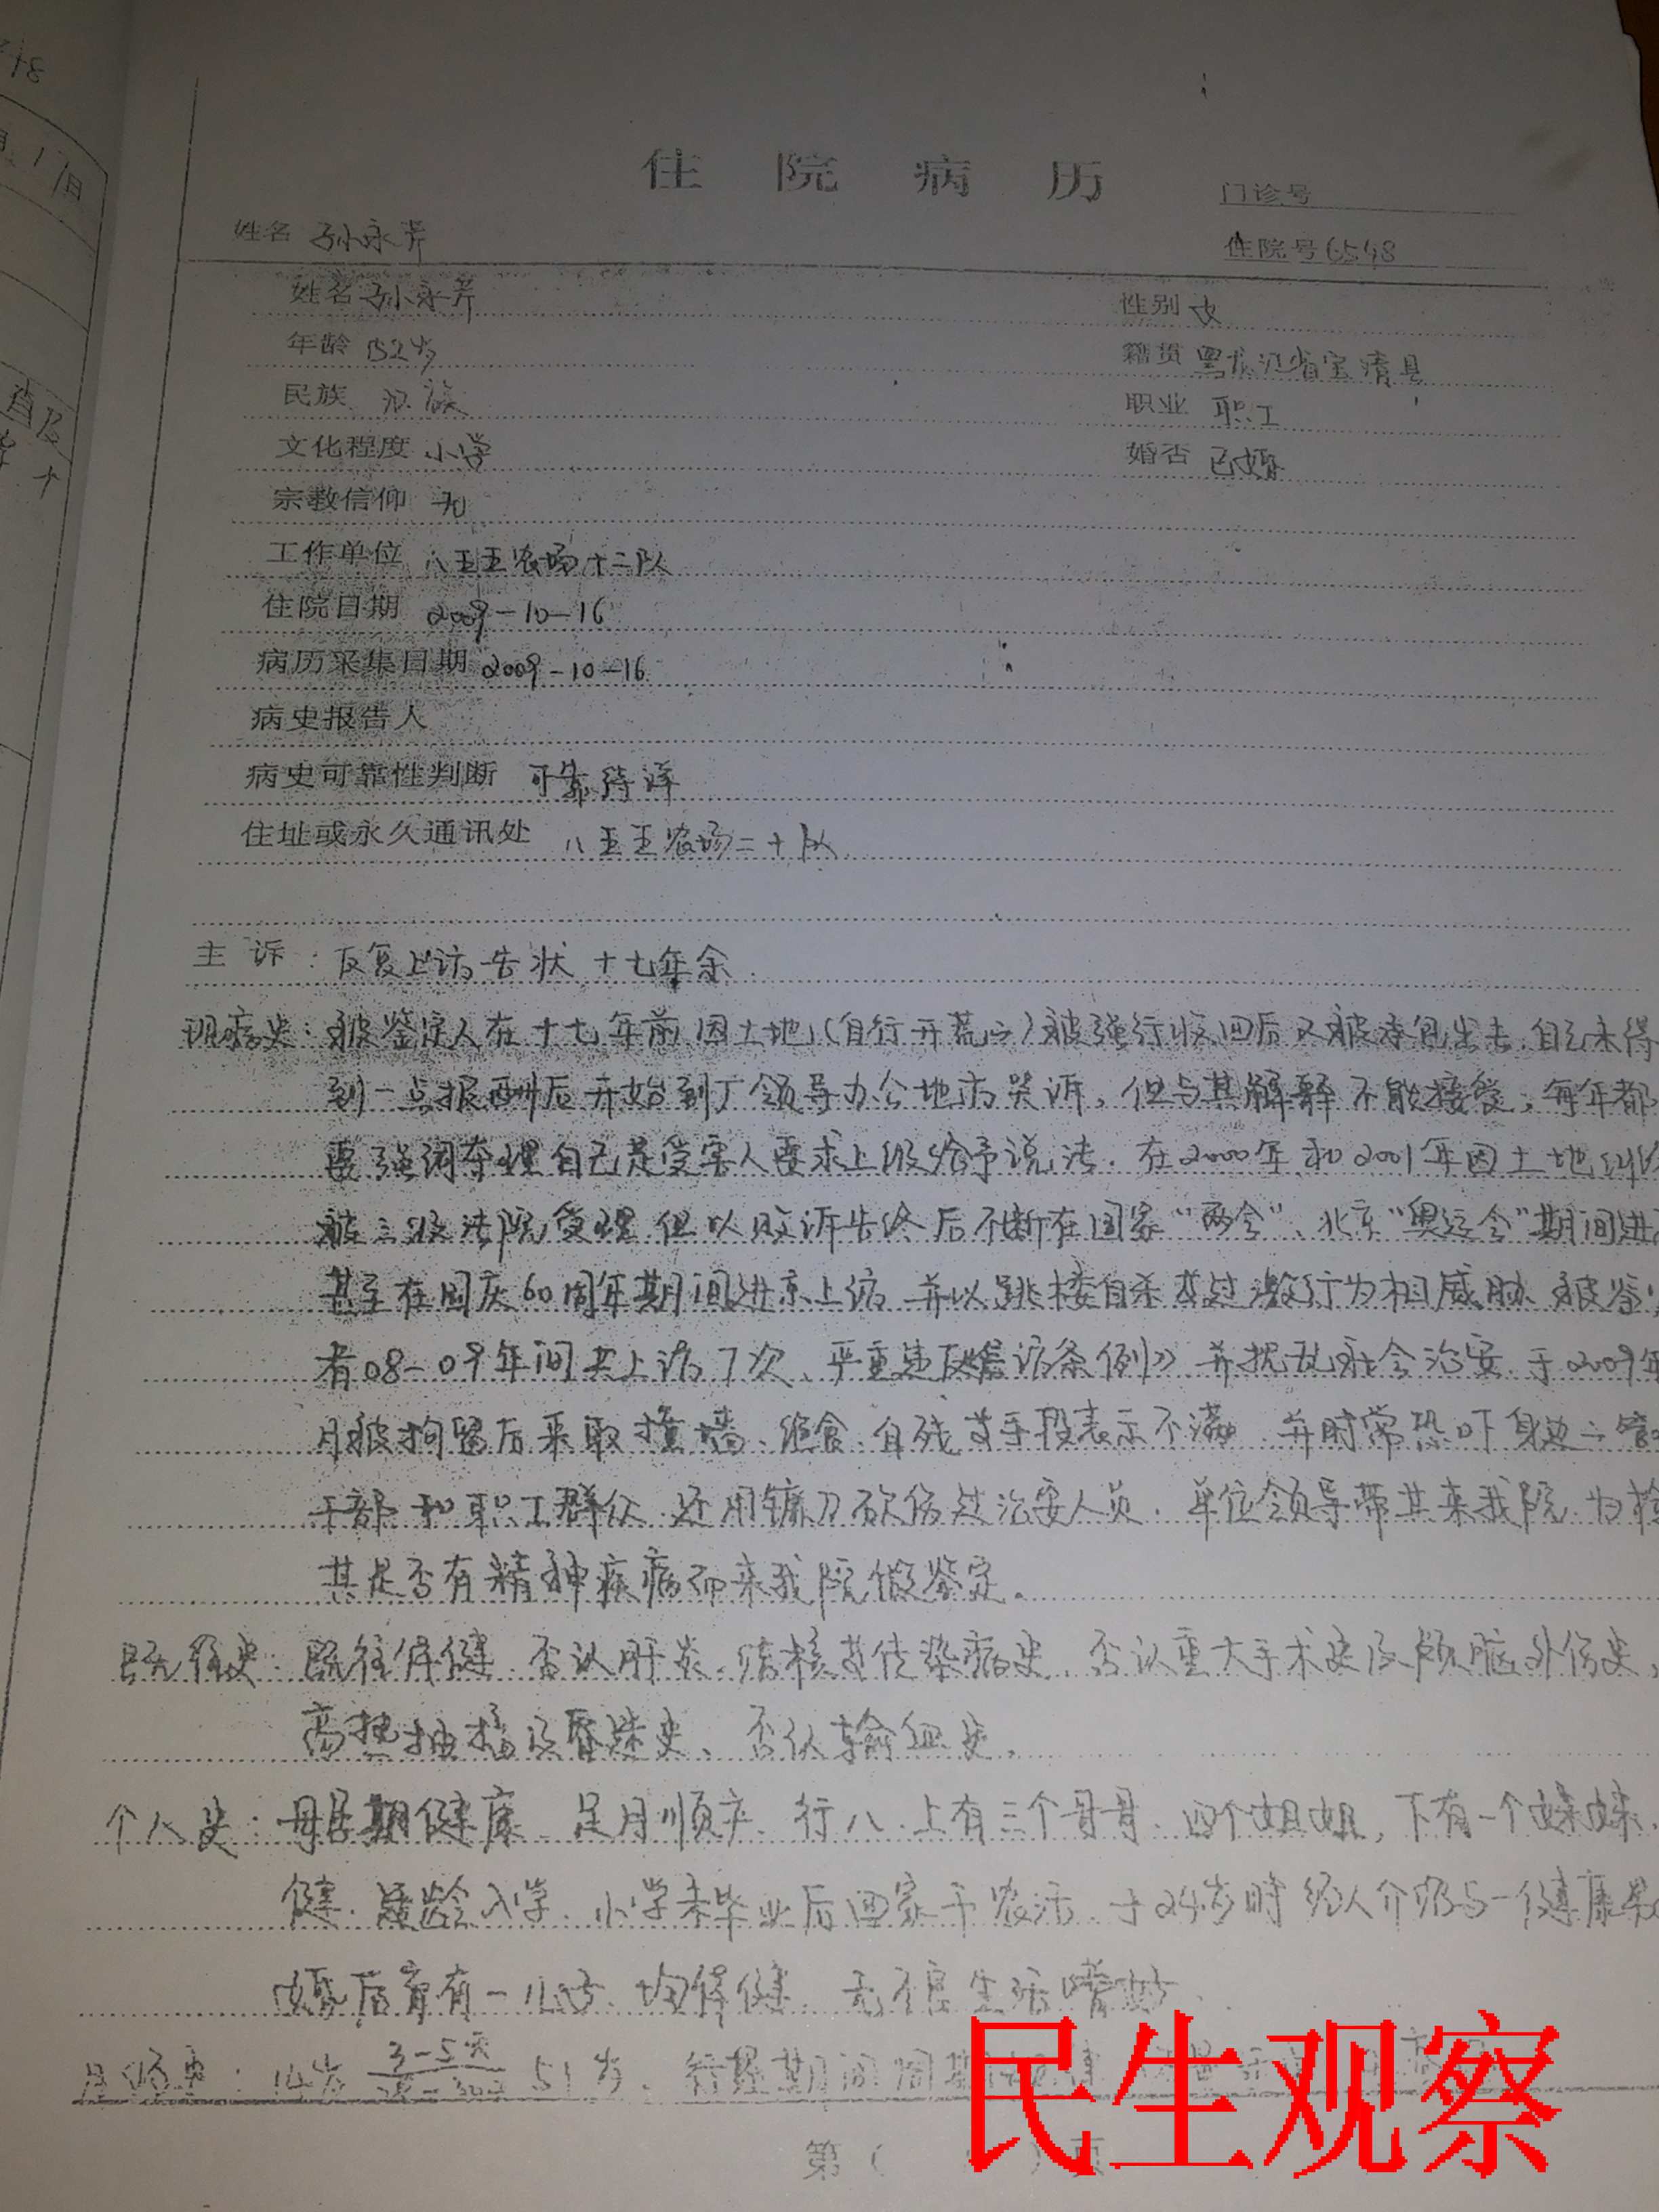 住院病历
门诊号
姓名 孙永芹
住院号 6548
姓名 孙永芹 性别 女
年龄 52岁 籍贯 黑龙江省宝清县
民族 汉族 职业 职工
文化程度 小学 婚否 已婚
宗教信仰 无
工作单位 八五三农场十二队
住院日期 2009-10-16
病历采集日期 2009-10-16
病史报告人
病史可靠性判断 可靠待详
住址或永久通讯处 八五三农场二十队
主诉:反复上访告状十七年余
现病史:被鉴定人在十七年前因土地(自行开荒)被强行收回后又被承包出去,自己未得
到一点报酬后开始到厂领导办公地点哭诉,但与其解释不能接受,每年都
要强词夺理自己是受害人要求上级给予说法.在2000年和2001年因土地纠纷
被三级法院受理但以败诉告终后不断在国家"两会"、北京"奥运会"期间进
甚至在国庆60周年期间进京上访 并以跳楼自杀等过激行为相威胁.被鉴
者08-09年间共上访7次、严重违反《信访条例》并扰乱社会治安.于2009年
月被拘留后采取撞墙、绝食、自残等手段表示不满.并时常恐吓身边
干部和职工群众.还用镰刀砍伤过治安人员.单位领导带其来我院.为检
其是否有精神疾病而来我院做鉴定。
既往史:既往体健.否认肝炎、结核等传染病史.否认重大手术史及颅脑外伤史,
高热抽搐及昏迷史、否认输血史.
个人史:母孕期健康.足月顺产.行八.上有三个哥哥、四个姐姐,下有一个妹妹.
健.适龄入学.小学未毕业后回家干农活.于24岁时经人介绍与一健康男
婚后育有一儿.均体健.无不良生活嗜好.
月经史:14岁 3-5天 51岁.行经期间周期规律
第( )页
民生观察